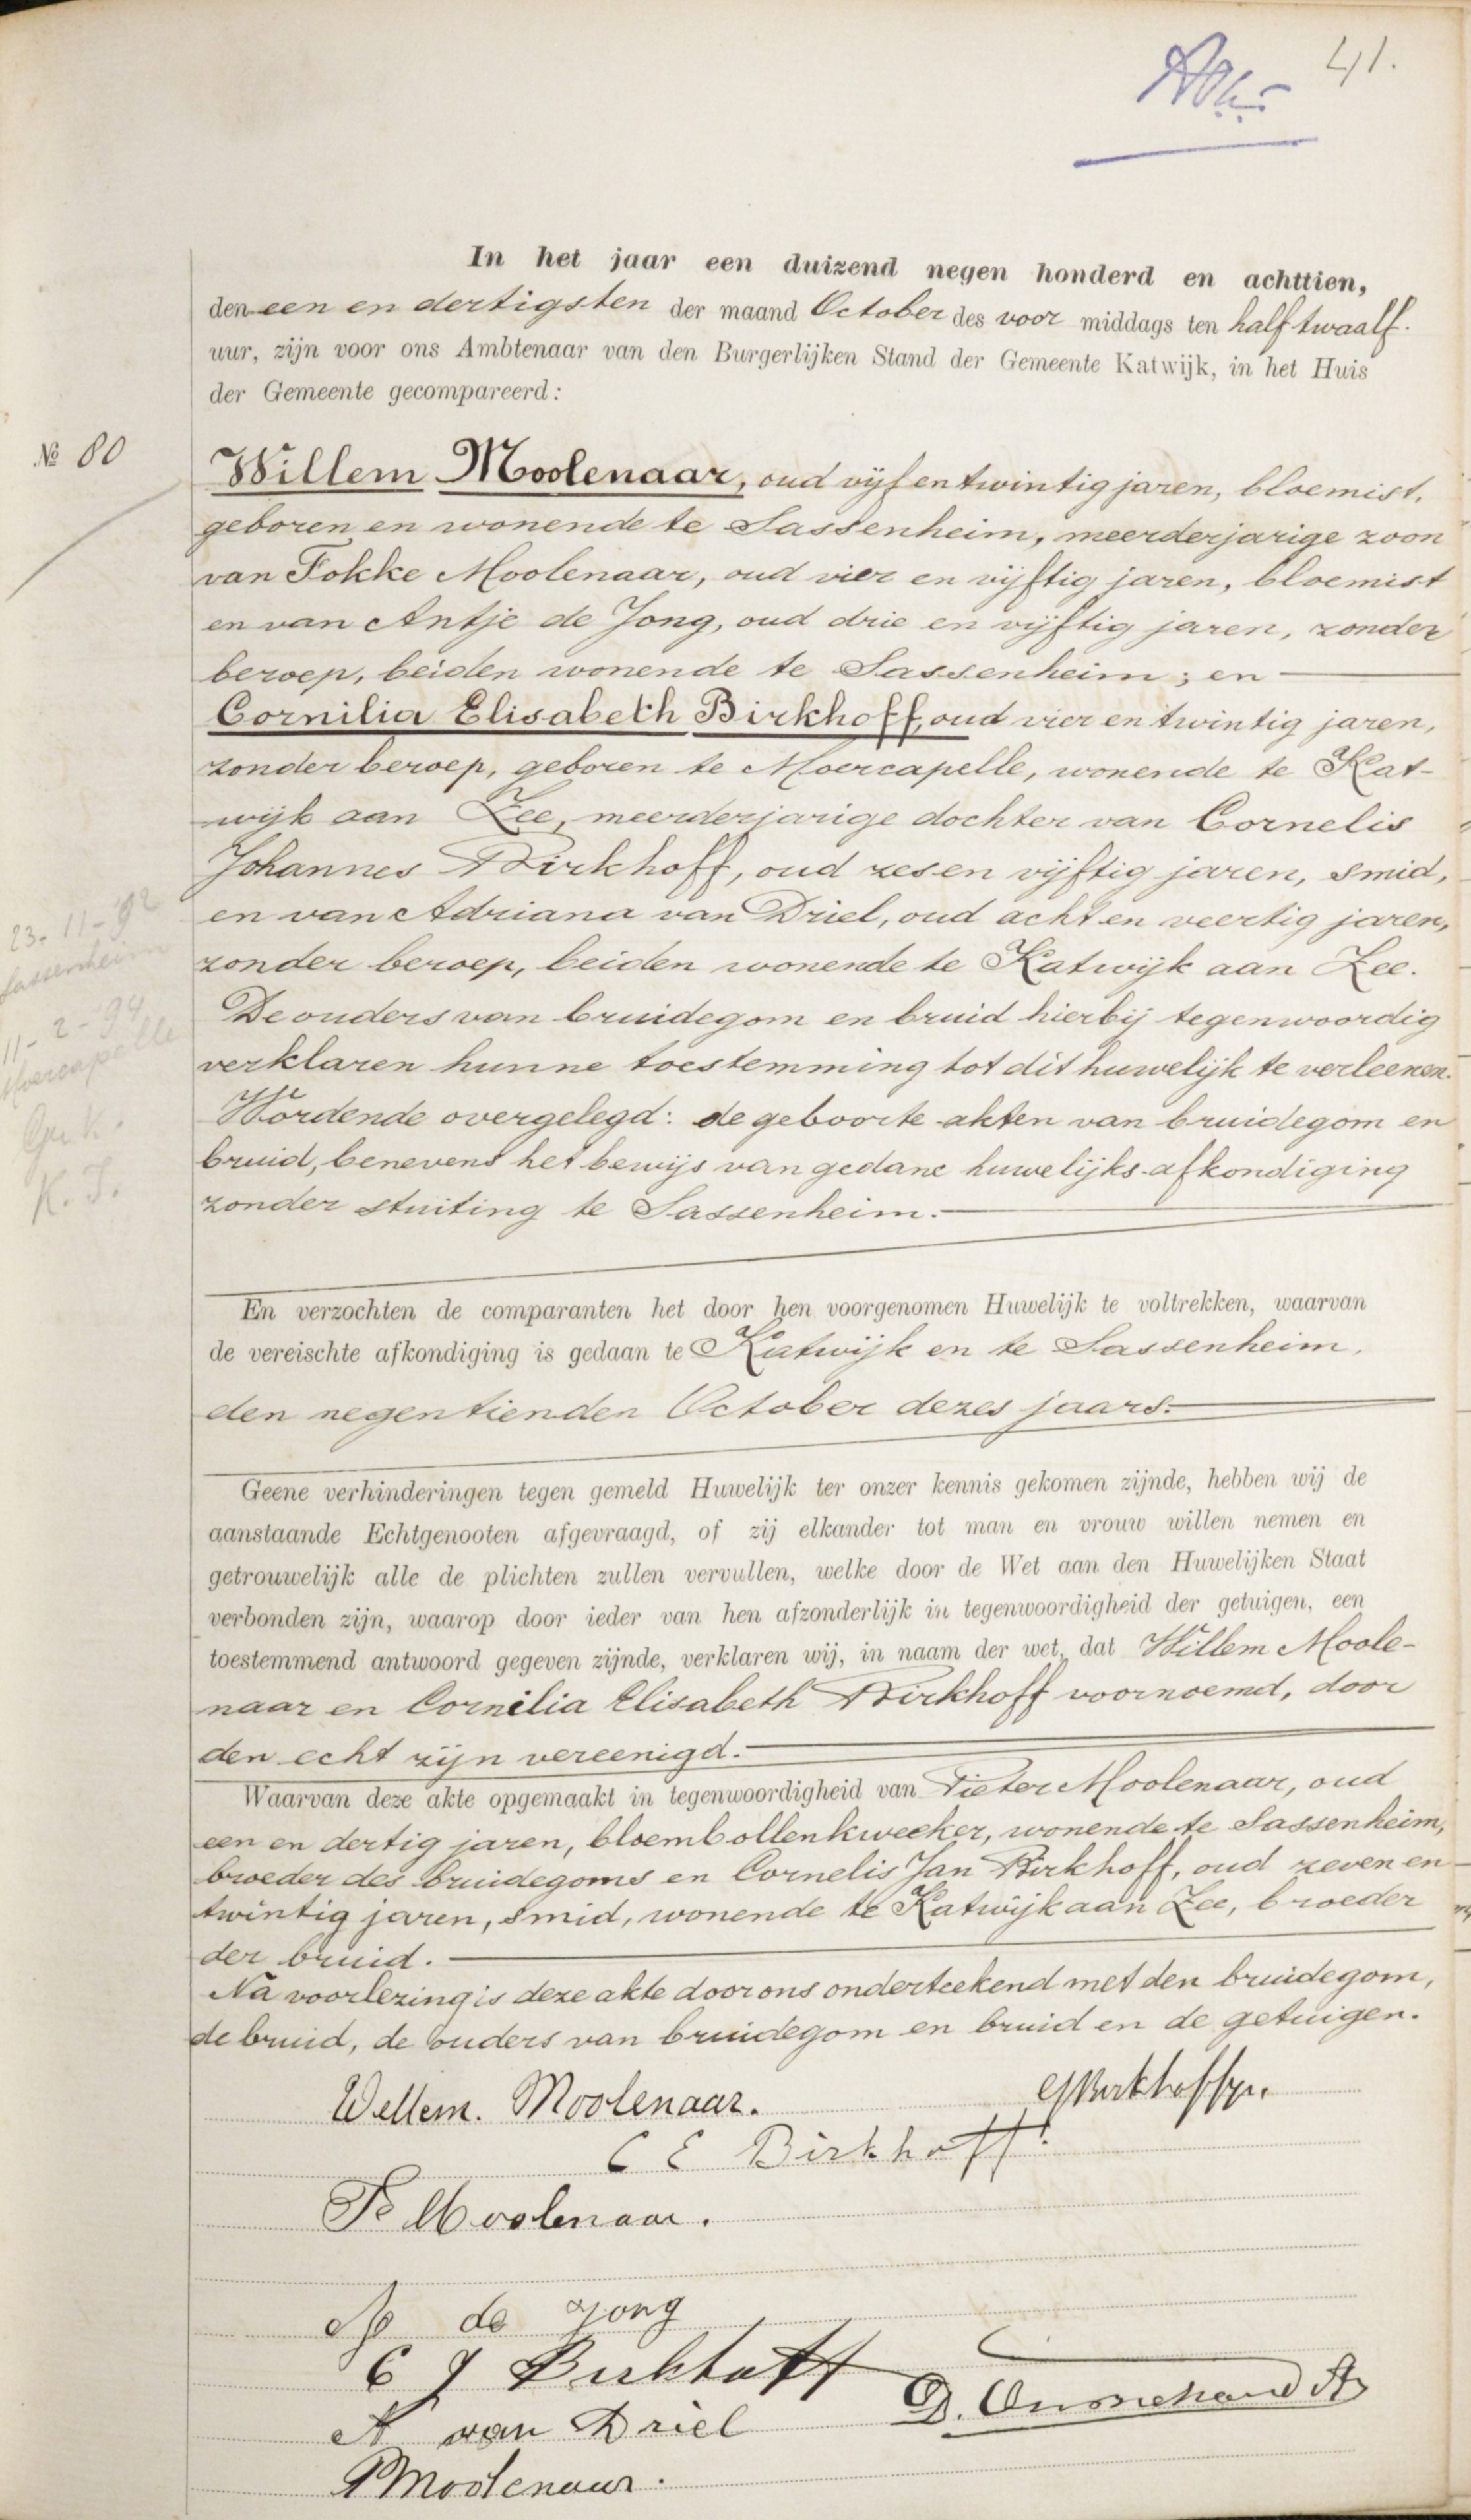 41.
In het jaar een duizend negen honderd en achttien,
den een en dertigsten der maand October des voor middags ten half twaalf.
uur, zijn voor ons Ambtenaar van den Burgerlijken Stand der Gemeente Katwijk, in het Huis
der Gemeente gecompareerd:
№ 80
Willem Moolenaar, oud vijf en twintig jaren, bloemist,
geboren en wonende te Sassenheim, meerderjarige zoon
van Fokke Moolenaar, oud vier en vijftig jaren, bloemist
en van Antje de Jong, oud drie en vijftig jaren, zonder
beroep, beiden wonende te Sassenheim; en
Cornilia Elisabeth Birkhoff, oud vier en twintig jaren,
zonder beroep, geboren te Moercapelle, wonende te Kat-
wijk aan Zee, meerderjarige dochter van Cornelis
Johannes Birkhoff, oud zes en vijftig jaren, smid,
en van Adriana van Driel, oud acht en veertig jaren,
zonder beroep, beiden wonende te Katwijk aan Zee.
De ouders van bruidegom en bruid hierbij tegenwoordig
verklaren hunne toestemming tot dit huwelijk te verleenen.
Wordende overgelegd: de geboorte-akten van bruidegom en
bruid, benevens het bewijs van gedane huwelijks-afkondiging
zonder stuiting te Sassenheim.
23-11-92
Sassenheim
11-2-94
Moercapelle
K. S.
En verzochten de comparanten het door hen voorgenomen Huwelijk te voltrekken, waarvan
de vereischte afkondiging is gedaan te Katwijk en te Sassenheim,
den negentienden October dezes jaars.
Geene verhinderingen tegen gemeld Huwelijk ter onzer kennis gekomen zijnde, hebben wij de
aanstaande Echtgenooten afgevraagd, of zij elkander tot man en vrouw willen nemen en
getrouwelijk alle de plichten zullen vervullen, welke door de Wet aan den Huwelijken Staat
verbonden zijn, waarop door ieder van hen afzonderlijk in tegenwoordigheid der getuigen, een
toestemmend antwoord gegeven zijnde, verklaren wij, in naam der wet, dat Willem Moole-
naar en Cornilia Elisabeth Birkhoff voornoemd, door
den echt zijn vereenigd.
Waarvan deze akte opgemaakt in tegenwoordigheid van Pieter Moolenaar, oud
een en dertig jaren, bloembollenkweeker, wonende te Sassenheim,
broeder des bruidegoms en Cornelis Jan Birkhoff, oud zeven en
twintig jaren, smid, wonende te Katwijk aan Zee, broeder
der bruid.
Na voorlezing is deze akte door ons onderteekend met den bruidegom,
de bruid, de ouders van bruidegom en bruid en de getuigen.
Willem. Moolenaar.
CJBirkhoffjr.
C E Birkhoff
F. Moolenaar.
A de Jong
C J Birkhoff
A van Driel
PMoolenaar.